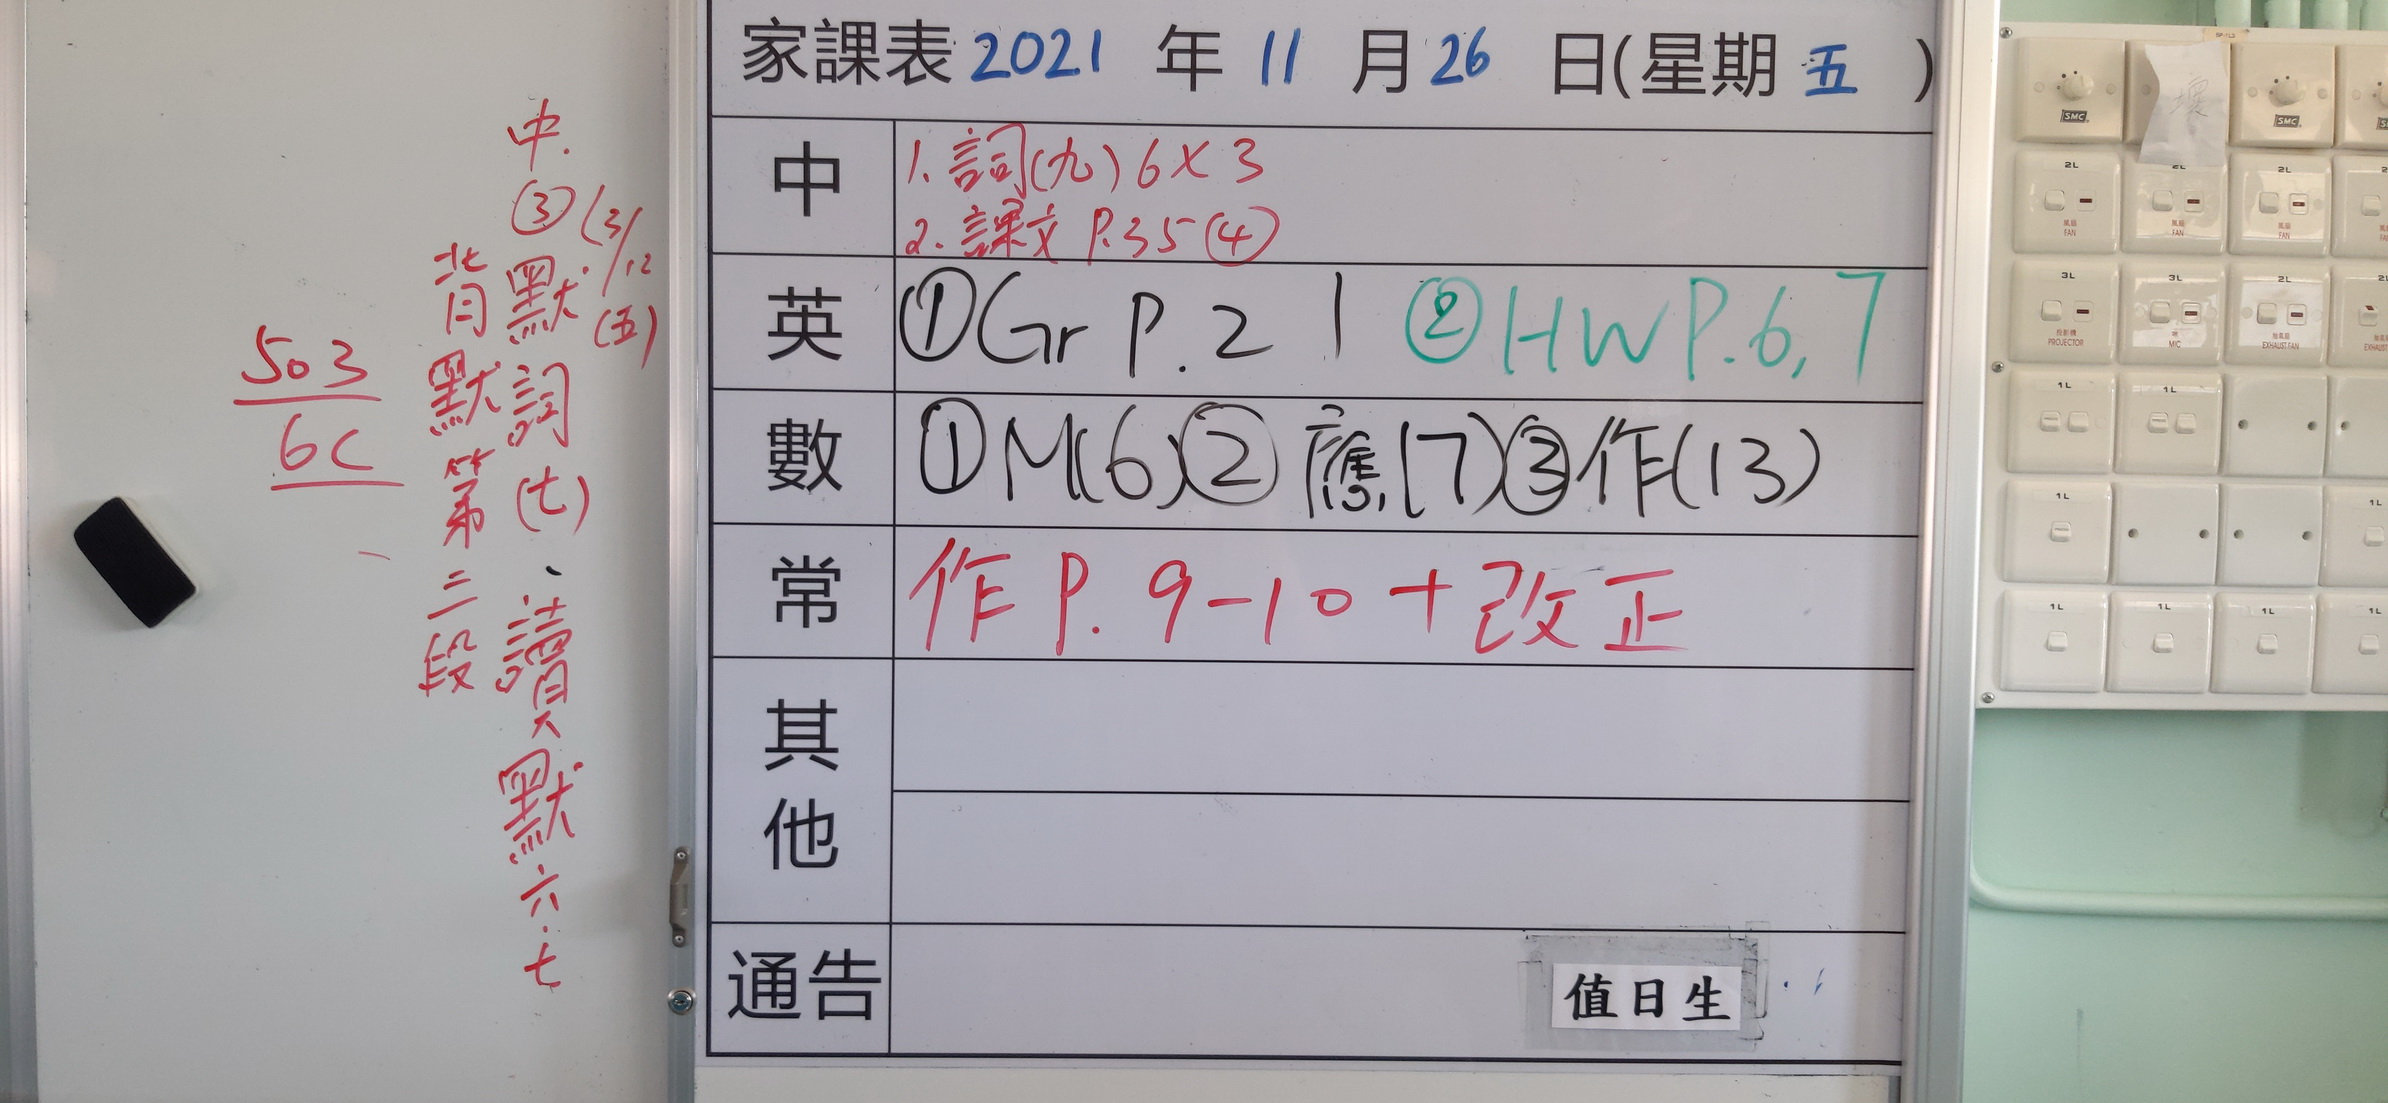 中.
③(3/12(五)
默詞(七)、讀默六.七
背默第三段
503
6C
家課表2021年11月26日(星期五)
中
1.詞(九)6×3
2.課文P.35④
英
①Gr P.21 ②HW P.6,7
數
①M(6)②應(7)③作(13)
常
作P.9-10+改正
其他
通告
值日生
壞
SMC SMC
2L 2L 2L
風扇 風扇 風扇
FAN FAN FAN
3L 3L 2L
投影機 咪 抽氣扇
PROJECTOR MIC EXHAUST FAN
1L 1L
1L 1L
1L 1L 1L 1L